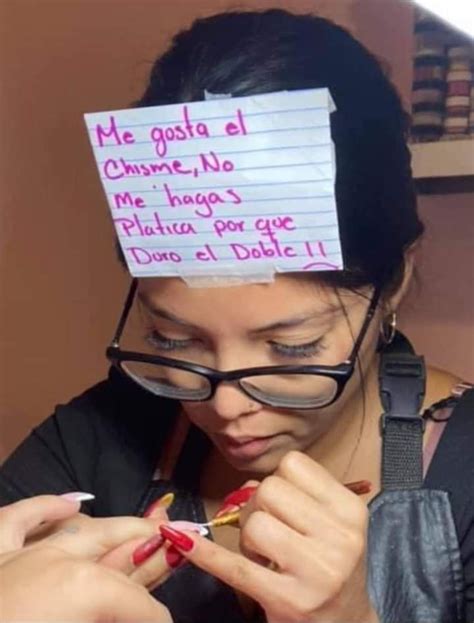 Me gosta el
Chisme, No
Me hagas
Platica por que
Duro el Doble!!